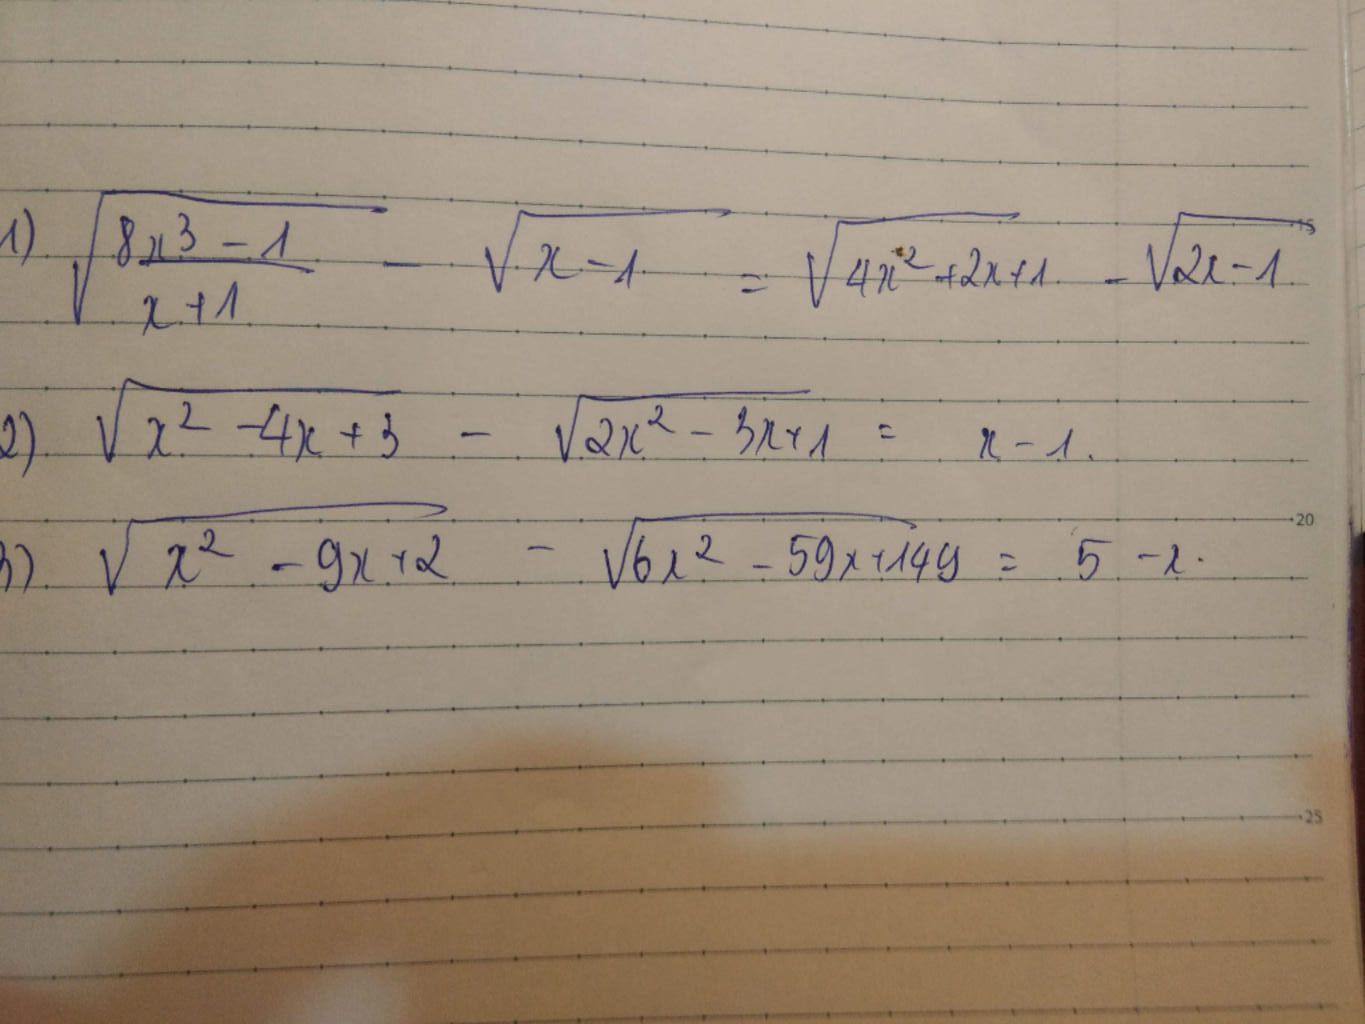 1) √((8x³ - 1)/(x + 1)) - √(x - 1) = √(4x² + 2x + 1) - √(2x - 1)
15
2) √(x² - 4x + 3) - √(2x² - 3x + 1) = x - 1.
20
3) √(x² - 9x + 2) - √(6x² - 59x + 149) = 5 - x.
25